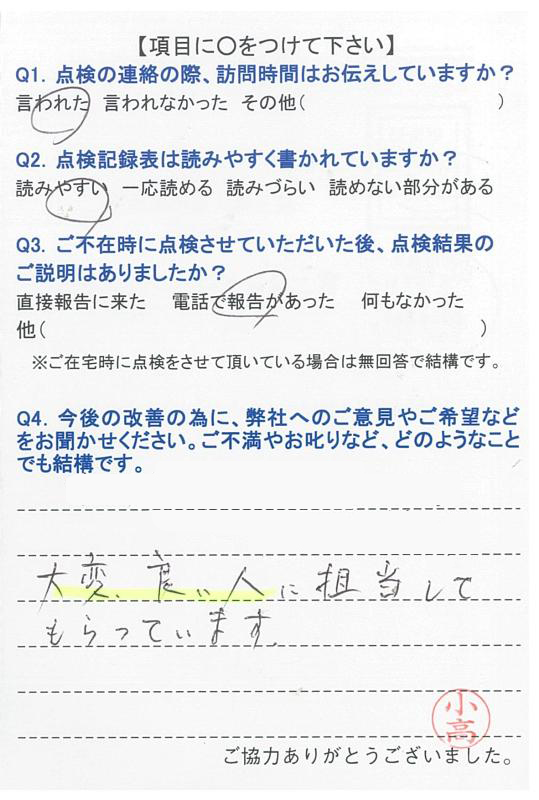 【項目に〇をつけて下さい】
Q1. 点検の連絡の際、訪問時間はお伝えしていますか？
言われた 言われなかった その他( )
Q2. 点検記録表は読みやすく書かれていますか？
読みやすい 一応読める 読みづらい 読めない部分がある
Q3. ご不在時に点検させていただいた後、点検結果の
ご説明はありましたか？
直接報告に来た 電話で報告があった 何もなかった
他( )
※ご在宅時に点検をさせて頂いている場合は無回答で結構です。
Q4. 今後の改善の為に、弊社へのご意見やご希望など
をお聞かせください。ご不満やお叱りなど、どのようなこと
でも結構です。
大変、良い人に担当して
もらっています。
小高
ご協力ありがとうございました。